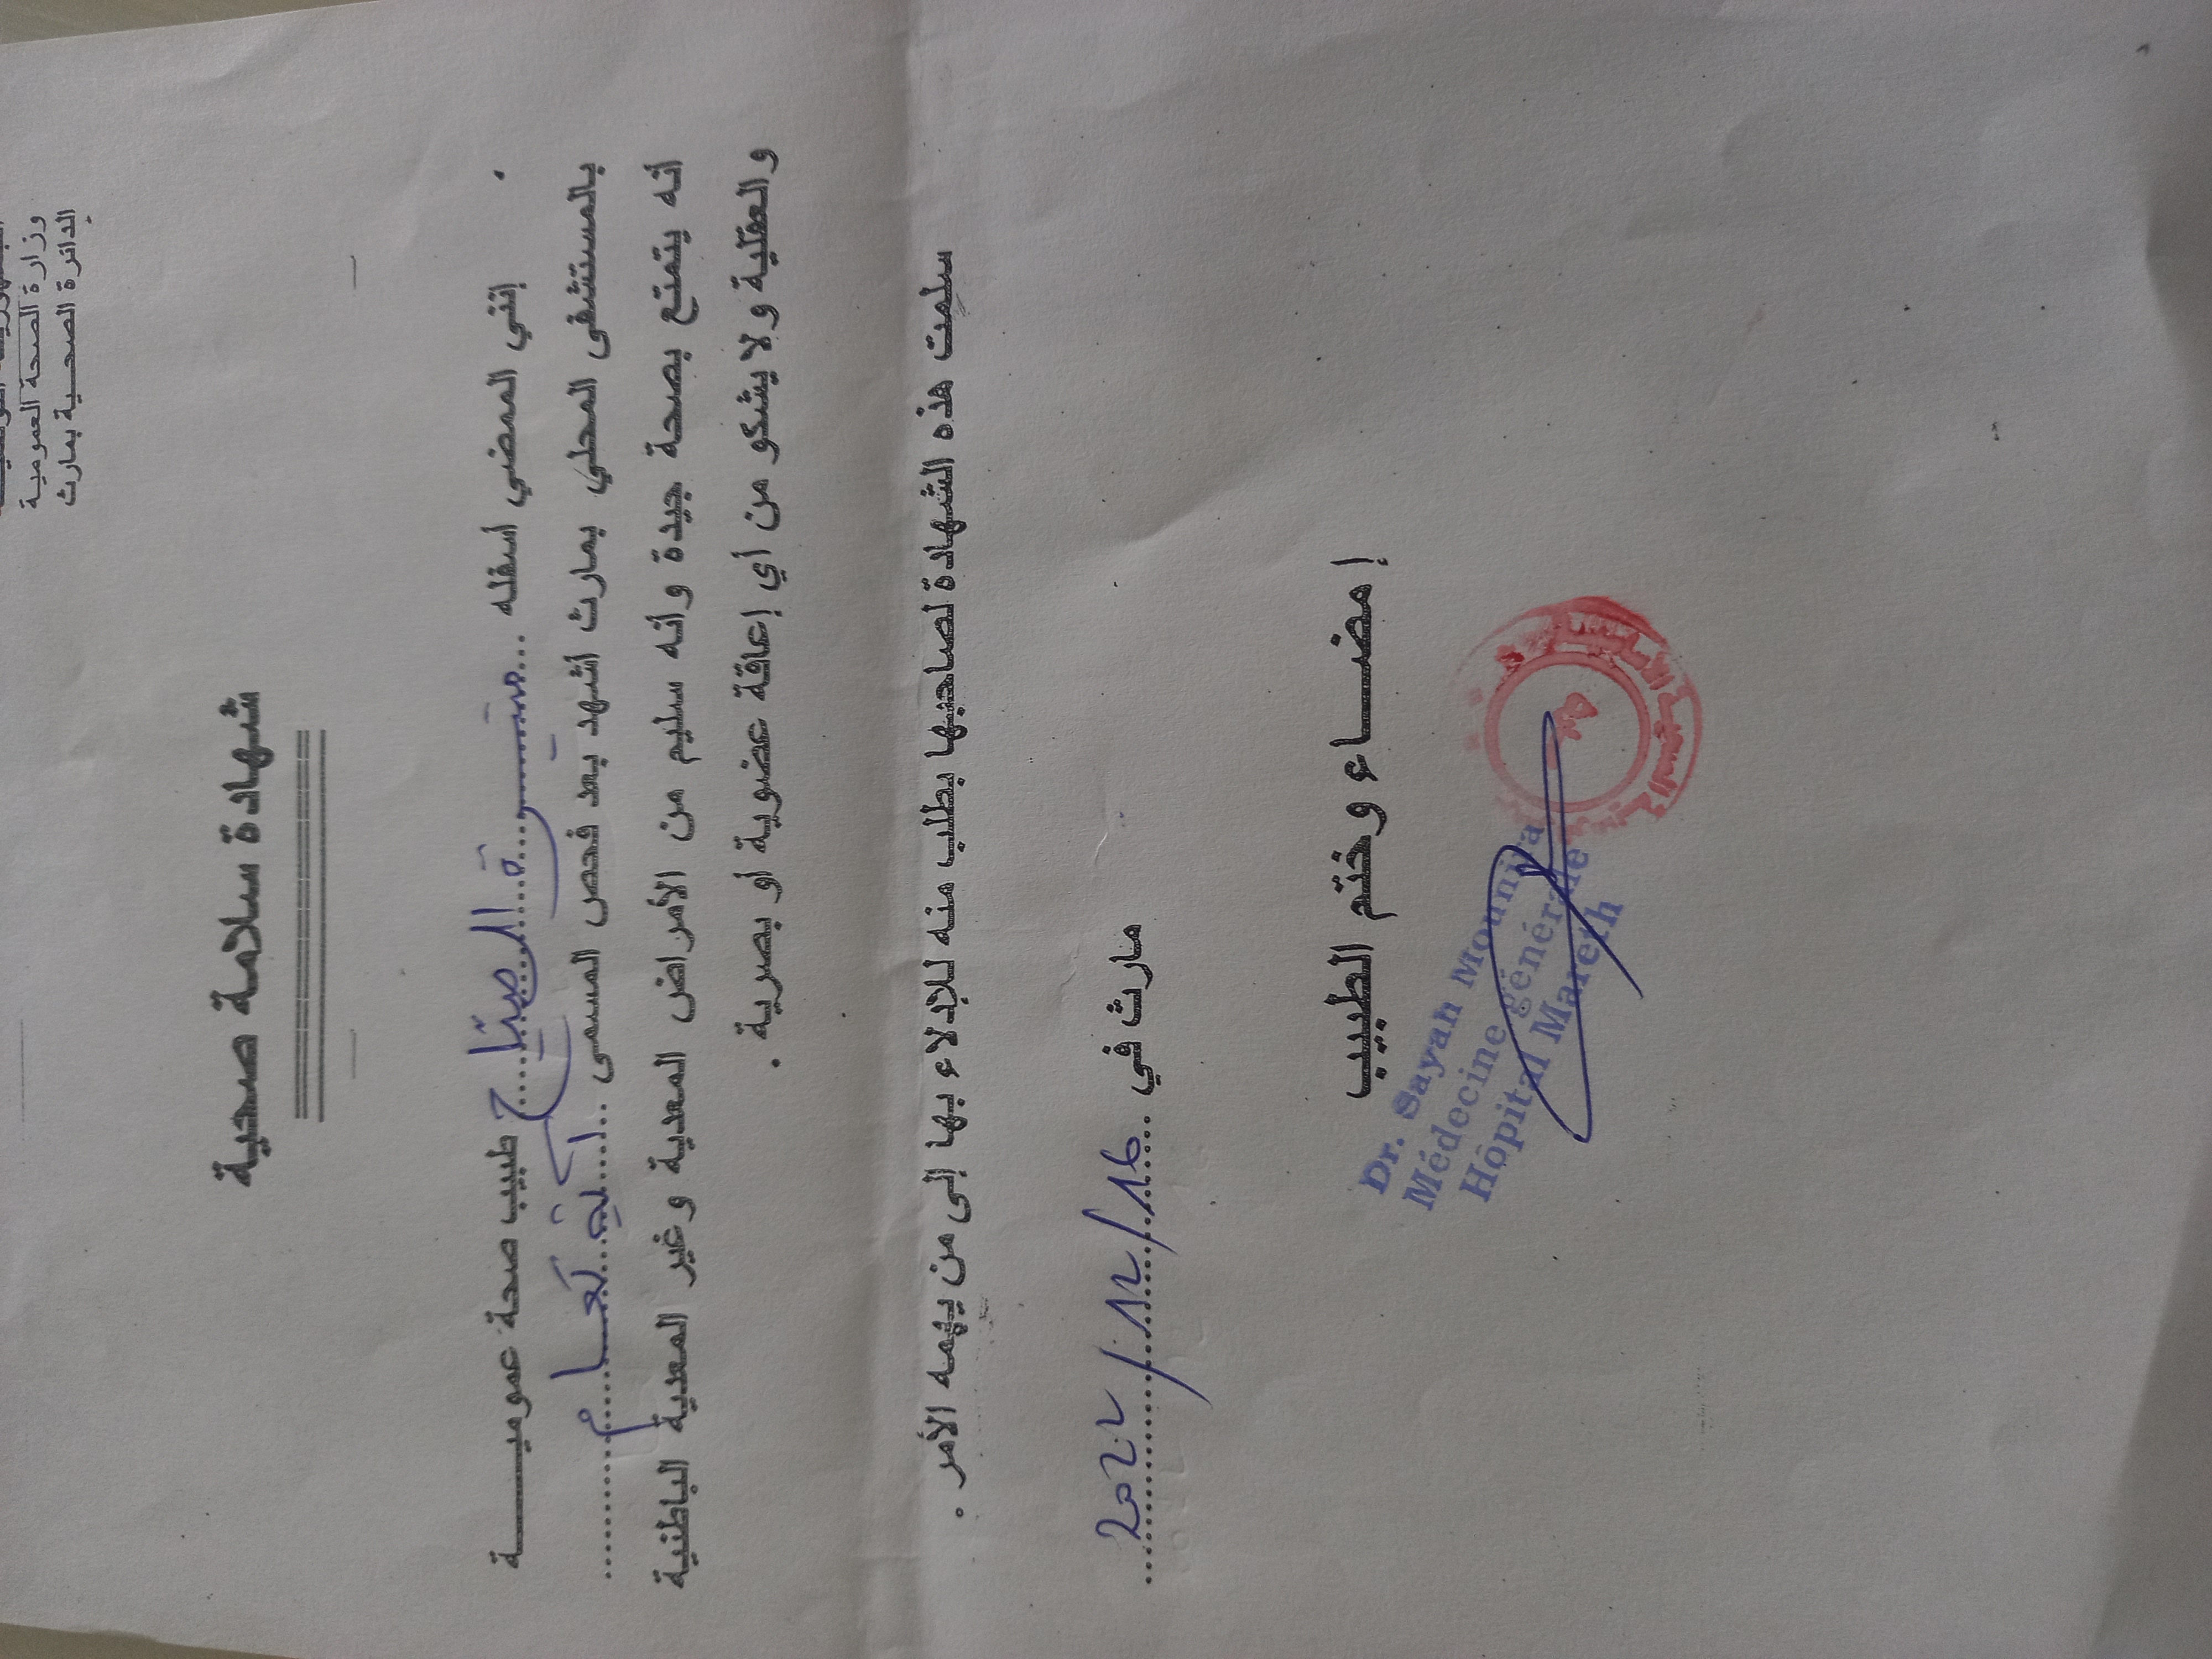 وزارة الصحة العمومية
الدائرة الصحية بمارث
شهادة سلامة صحية
إنني الممضي أسفله ... الصياح طبيب صحة عموميـــــــة
بالمستشفى المحلي بمارث أشهد بعد فحص المسمى ...
أنه يتمتع بصحة جيدة وأنه سليم من الأمراض المعدية وغير المعدية الباطنية
والعقلية ولا يشكو من أي إعاقة عضوية أو بصرية .
سلمت هذه الشهادة لصاحبها بطلب منه للادلاء بها إلى من يهمه الأمر .
مارث في 16/12/2022
إمضـــاء وختم الطبيب
Dr. Sayah Mounira
Médecine générale
Hôpital Mareth